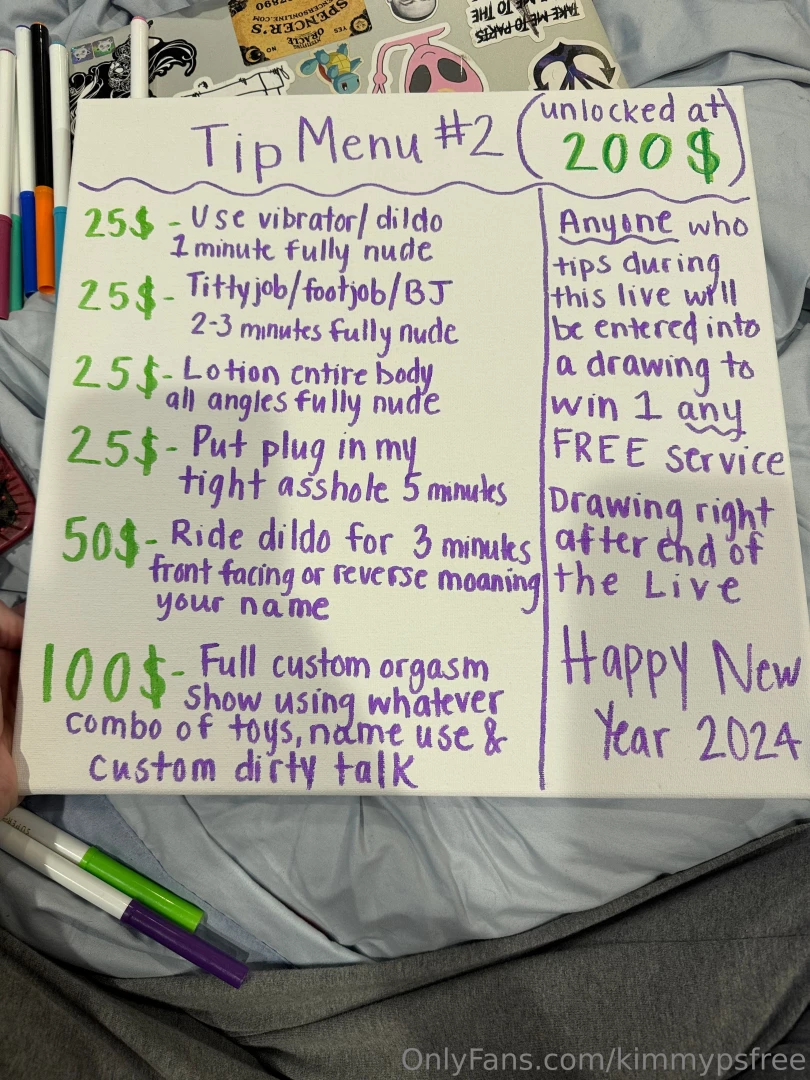 SPENCER'S
SPENCERSONLINE.COM
ORACLE
YES
NO
67890
TAKE ME TO PARTS
Tip Menu #2
(unlocked at
200$)
25$ - Use vibrator/dildo
1 minute fully nude
25$ - Tittyjob/footjob/BJ
2-3 minutes fully nude
25$ - Lotion entire body
all angles fully nude
25$ - Put plug in my
tight asshole 5 minutes
50$ - Ride dildo for 3 minutes
front facing or reverse moaning
your name
100$ - Full custom orgasm
show using whatever
combo of toys, name use &
custom dirty talk
Anyone who
tips during
this live will
be entered into
a drawing to
win 1 any
FREE service
Drawing right
after end of
the Live
Happy New
Year 2024
OnlyFans.com/kimmypsfree